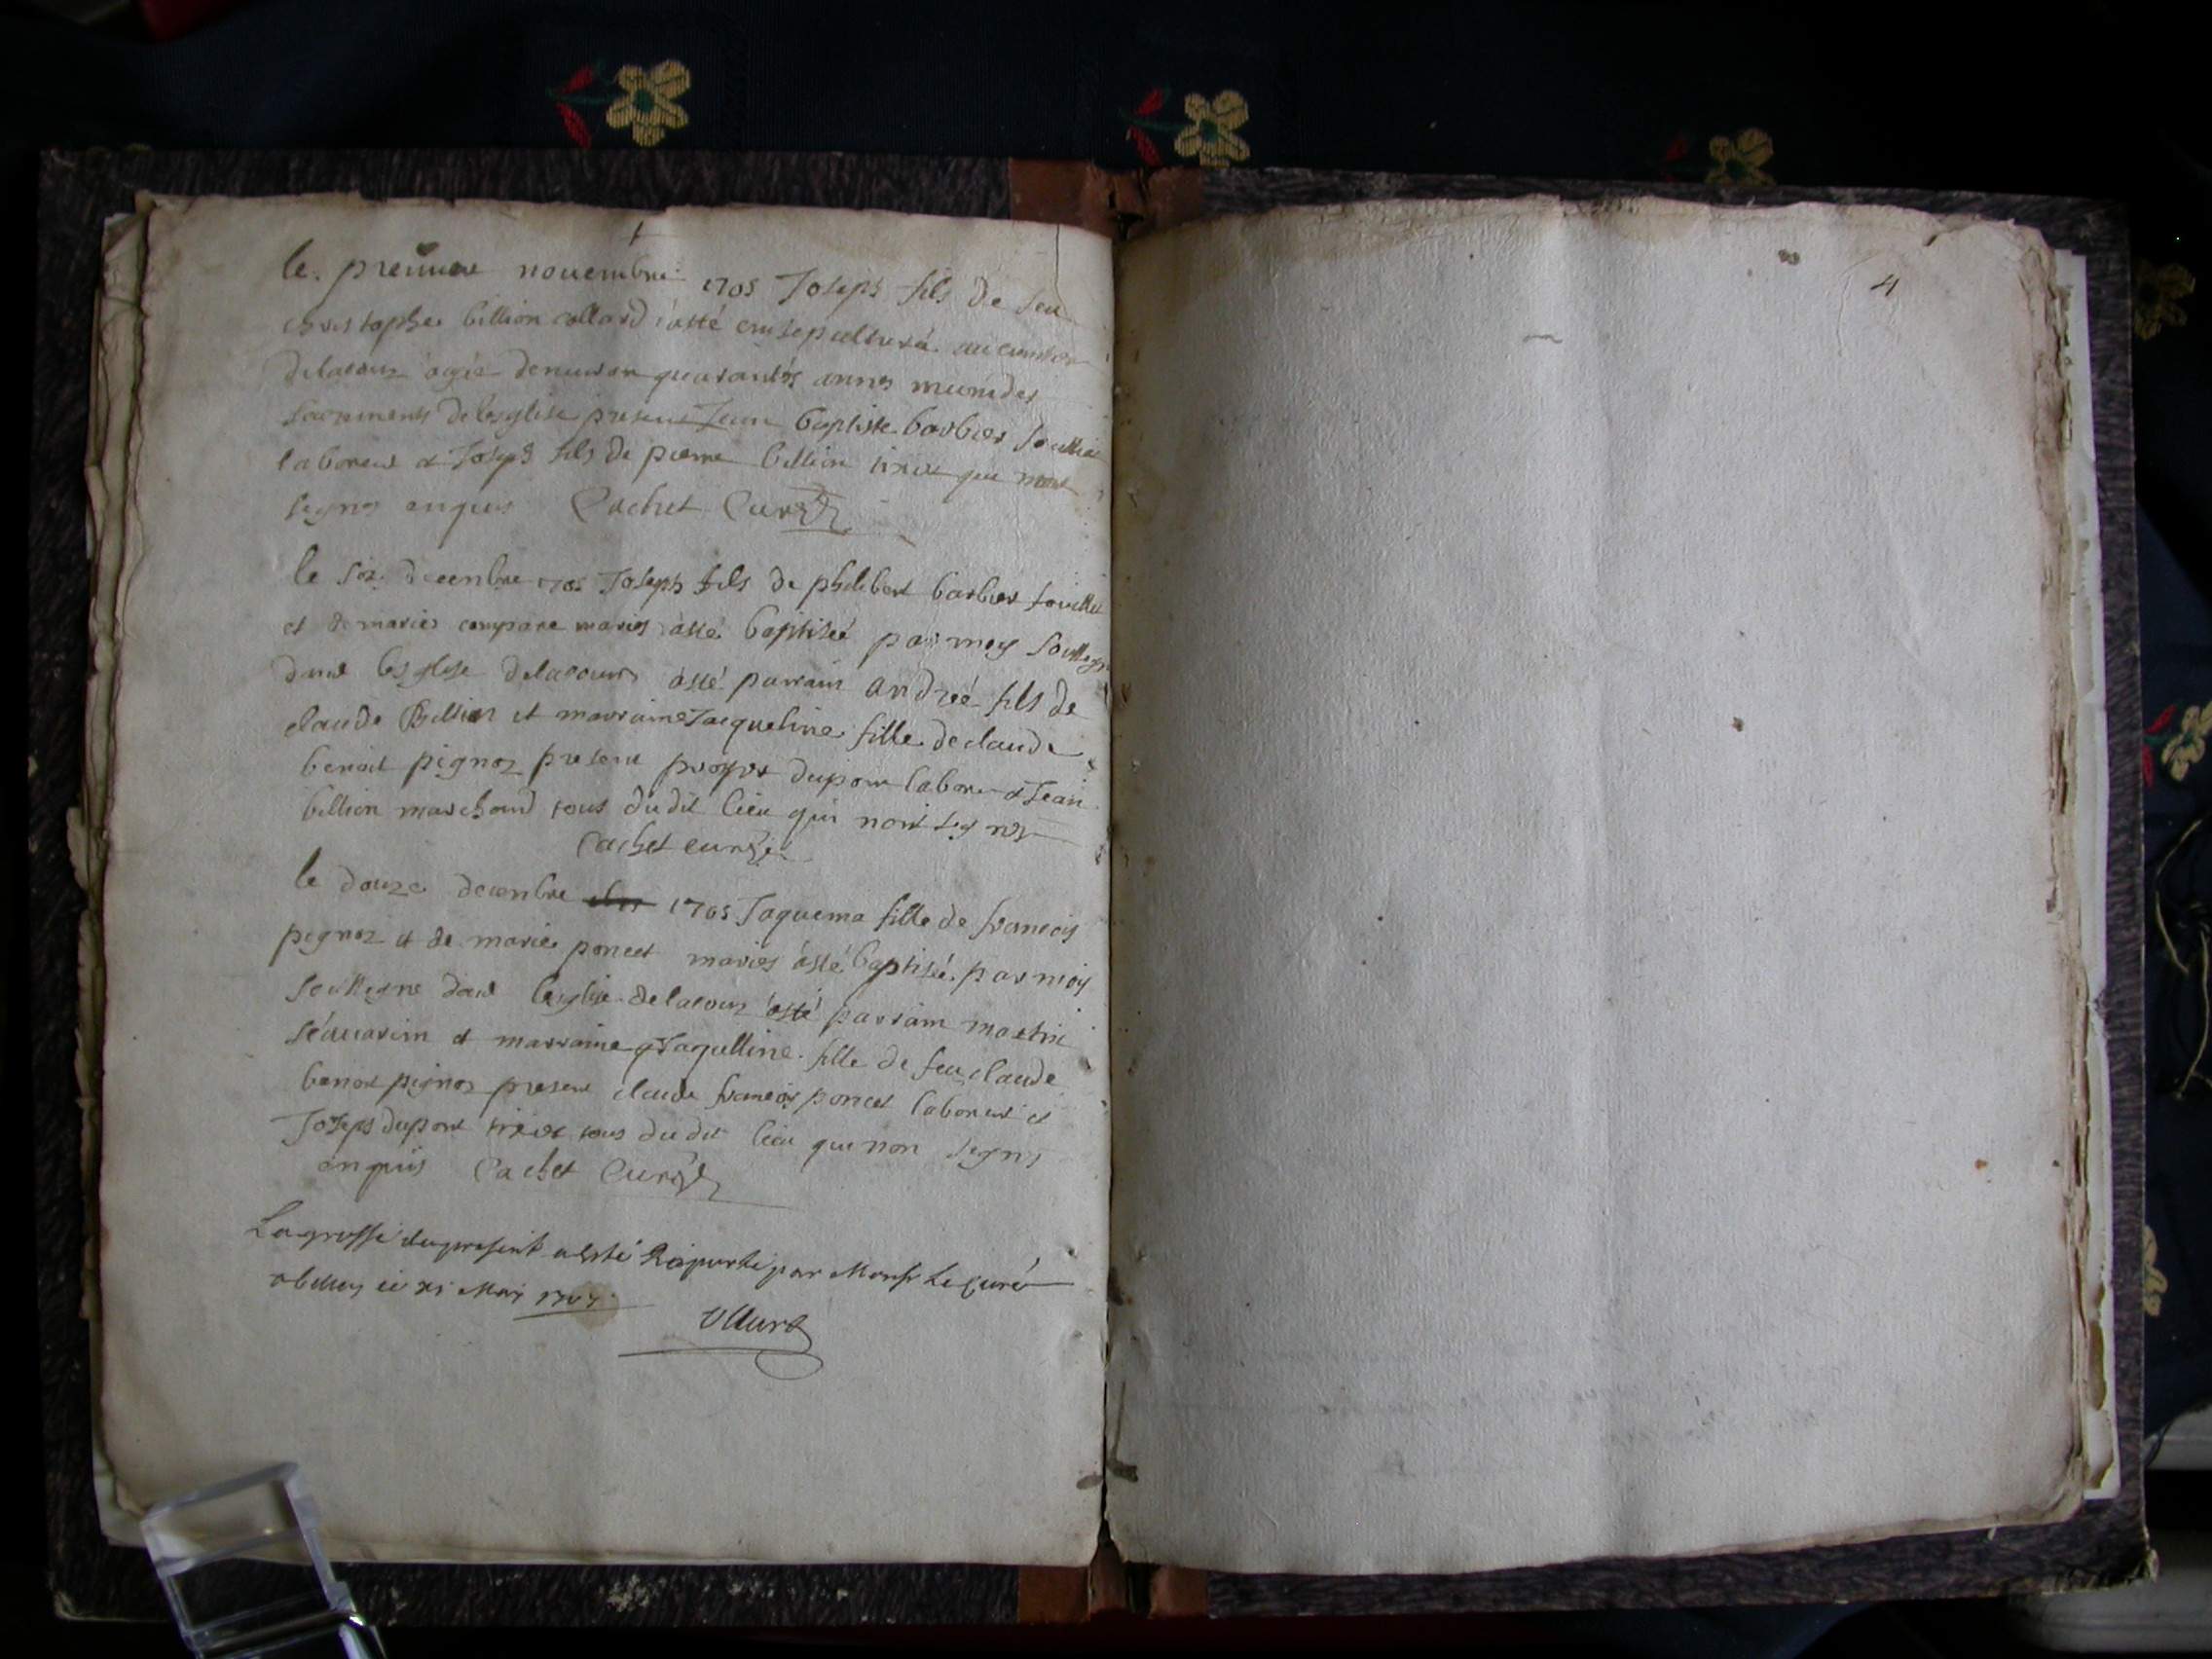 le premier novembre 1705 Joseph fils de feu
christophe billion collard a esté ensepulturé au cimetier
delacoux agé denuiron quarantes annes muni des
sacrements de lesglise present Jean baptiste barbier
laboreur et Joseph fils de pierre billion tixier qui nont
signes enquis Cachet Curé
le six decembre 1705 Joseph fils de philibert barbier
et de marie compare maries a esté baptiseé par moy soussigné
dans lesglise delacoux a esté parrain andreé fils de
claude Billion et marraine Jacqueline fille de claude
benoit pignoz present prosper dupont labore et Jean
billion marchand tous du dit lieu qui nont signes
Cachet curé
le douze decembre 1705 Jaquema fille de francois
pignoz et de marie poncet maries a esté baptiseé par moy
soussigne dans lesglise delacoux a esté parrain
et marraine Jaquelline fille de feu claude
benoit pignoz present claude francois poncet laboreur et
Joseph dupont tixier tous du dit lieu qui non signes
enquis Cachet Curé
La grosse du present a esté Raporté par Monsr Le Curé
a belley ce May
4